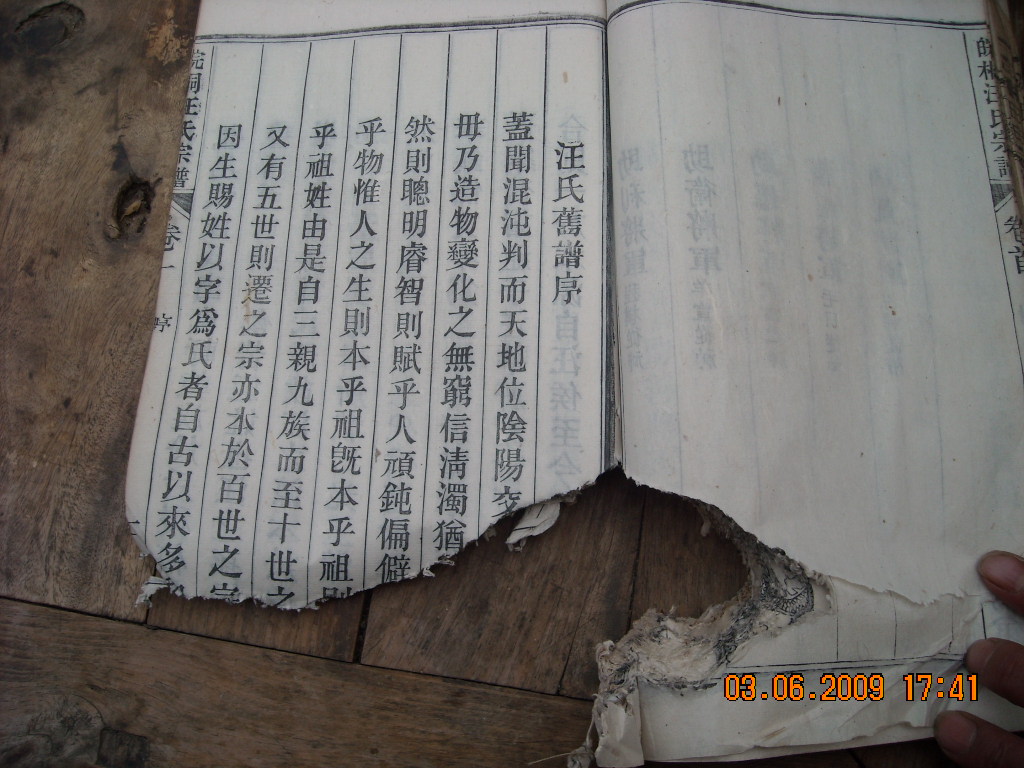 汪氏舊譜序
蓋聞混沌判而天地位陰陽交
毋乃造物變化之無窮信清濁猶
然則聰明睿智則賦乎人頑鈍偏僻
乎物惟人之生則本乎祖旣本乎祖則
乎祖姓由是自三親九族而至十世之
又有五世則遷之宗亦本於百世之宗
因生賜姓以字爲氏者自古以來多
皖桐汪氏宗譜
卷一
序
皖桐汪氏宗譜
卷首
助衛將軍
03.06.2009 17:41